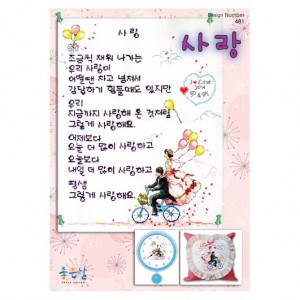 Design Number
481
사랑
사랑
조금씩 채워 나가는
우리 사랑이
어떨땐 차고 넘쳐서
감당하기 힘들때도 있지만
우리
지금까지 사랑해 온 것처럼
그렇게 사랑해요.
어제보다
오늘 더 많이 사랑하고
오늘보다
내일 더 많이 사랑하고
평생
그렇게 사랑해요.
I Love
You
좋은날